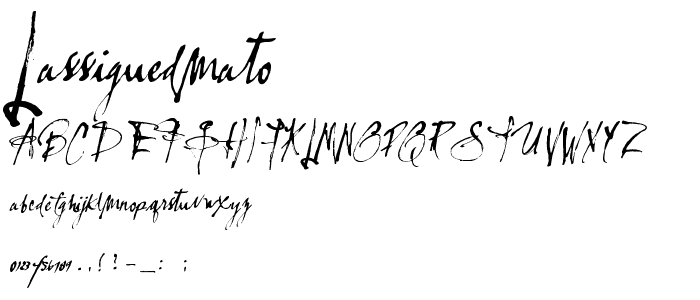 LassiguedMato
ABCDEFGHIJKLMNOPQRSTUVWXYZ
abcdefghijklmnopqrstuvwxyz
0123456789 . , ! ? - _ : ;